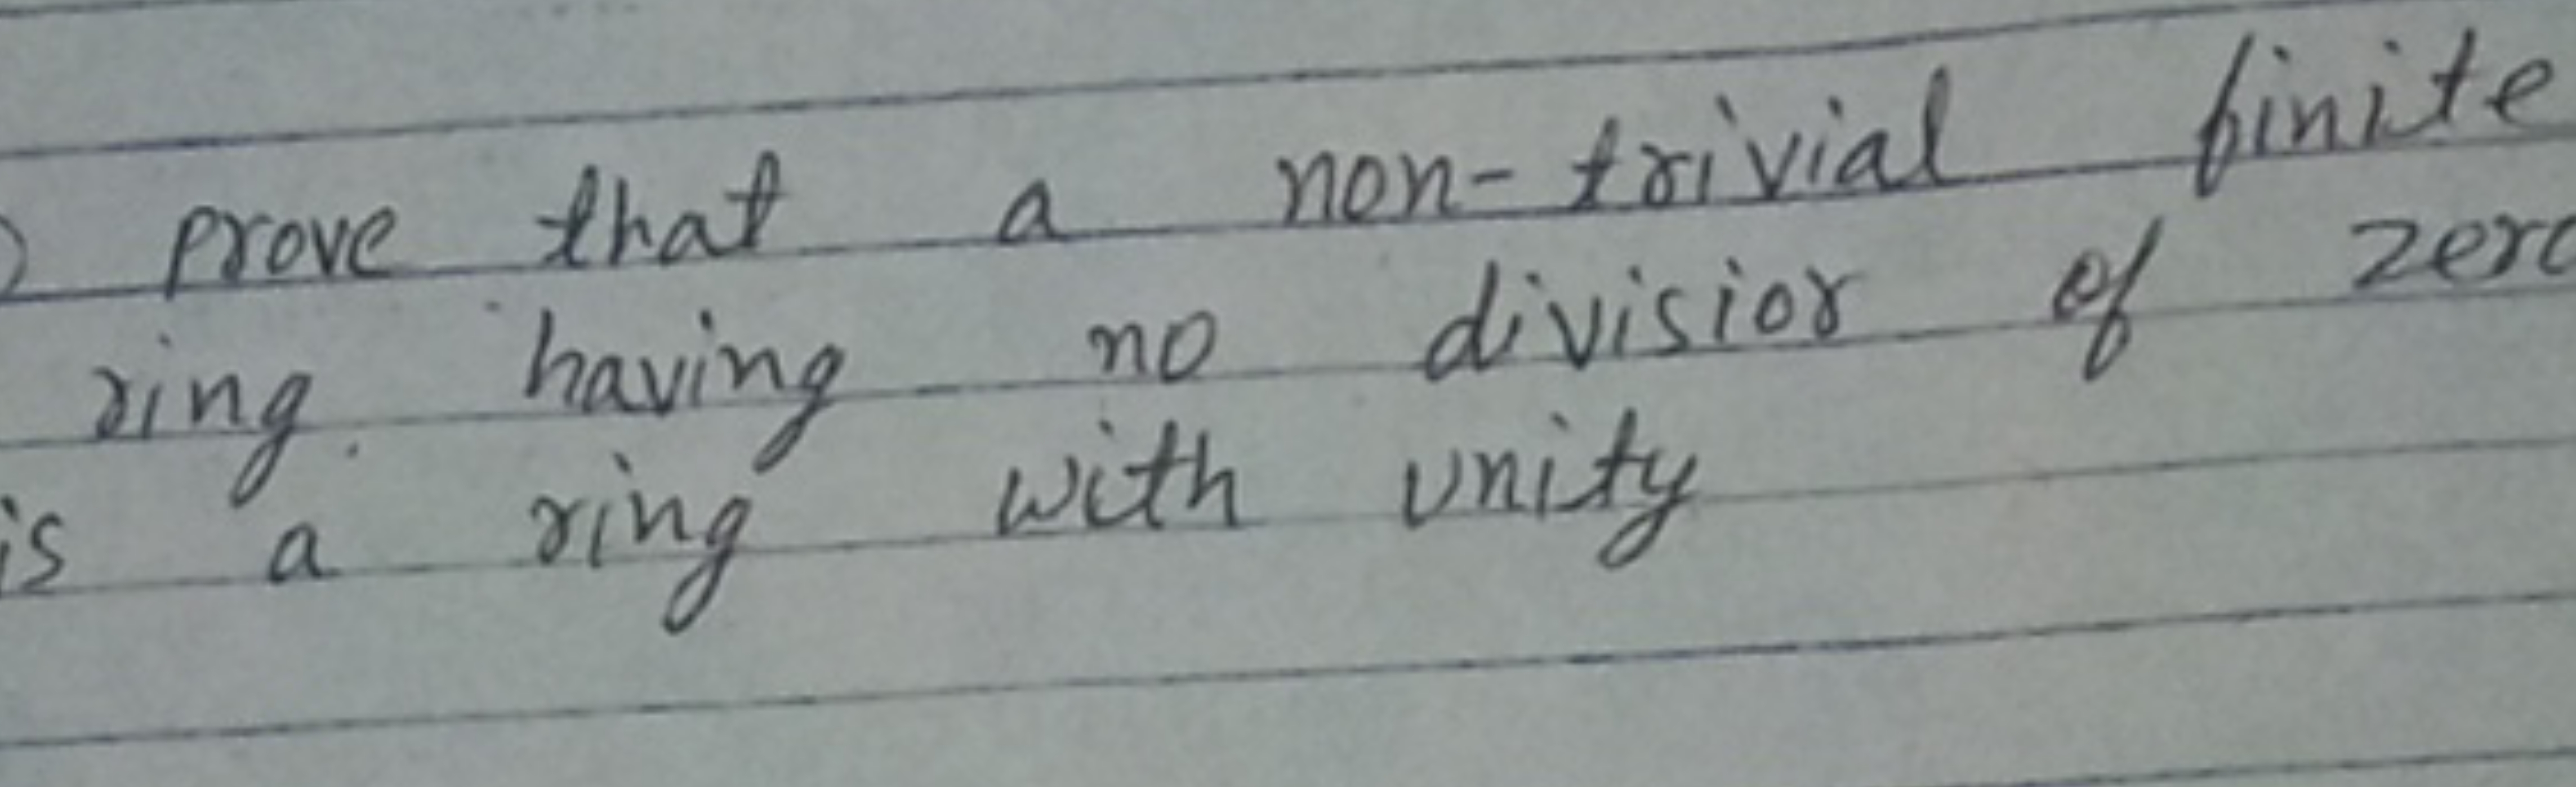 prove that a non-trivial finite
ring having no divisior of zero
is a ring with unity